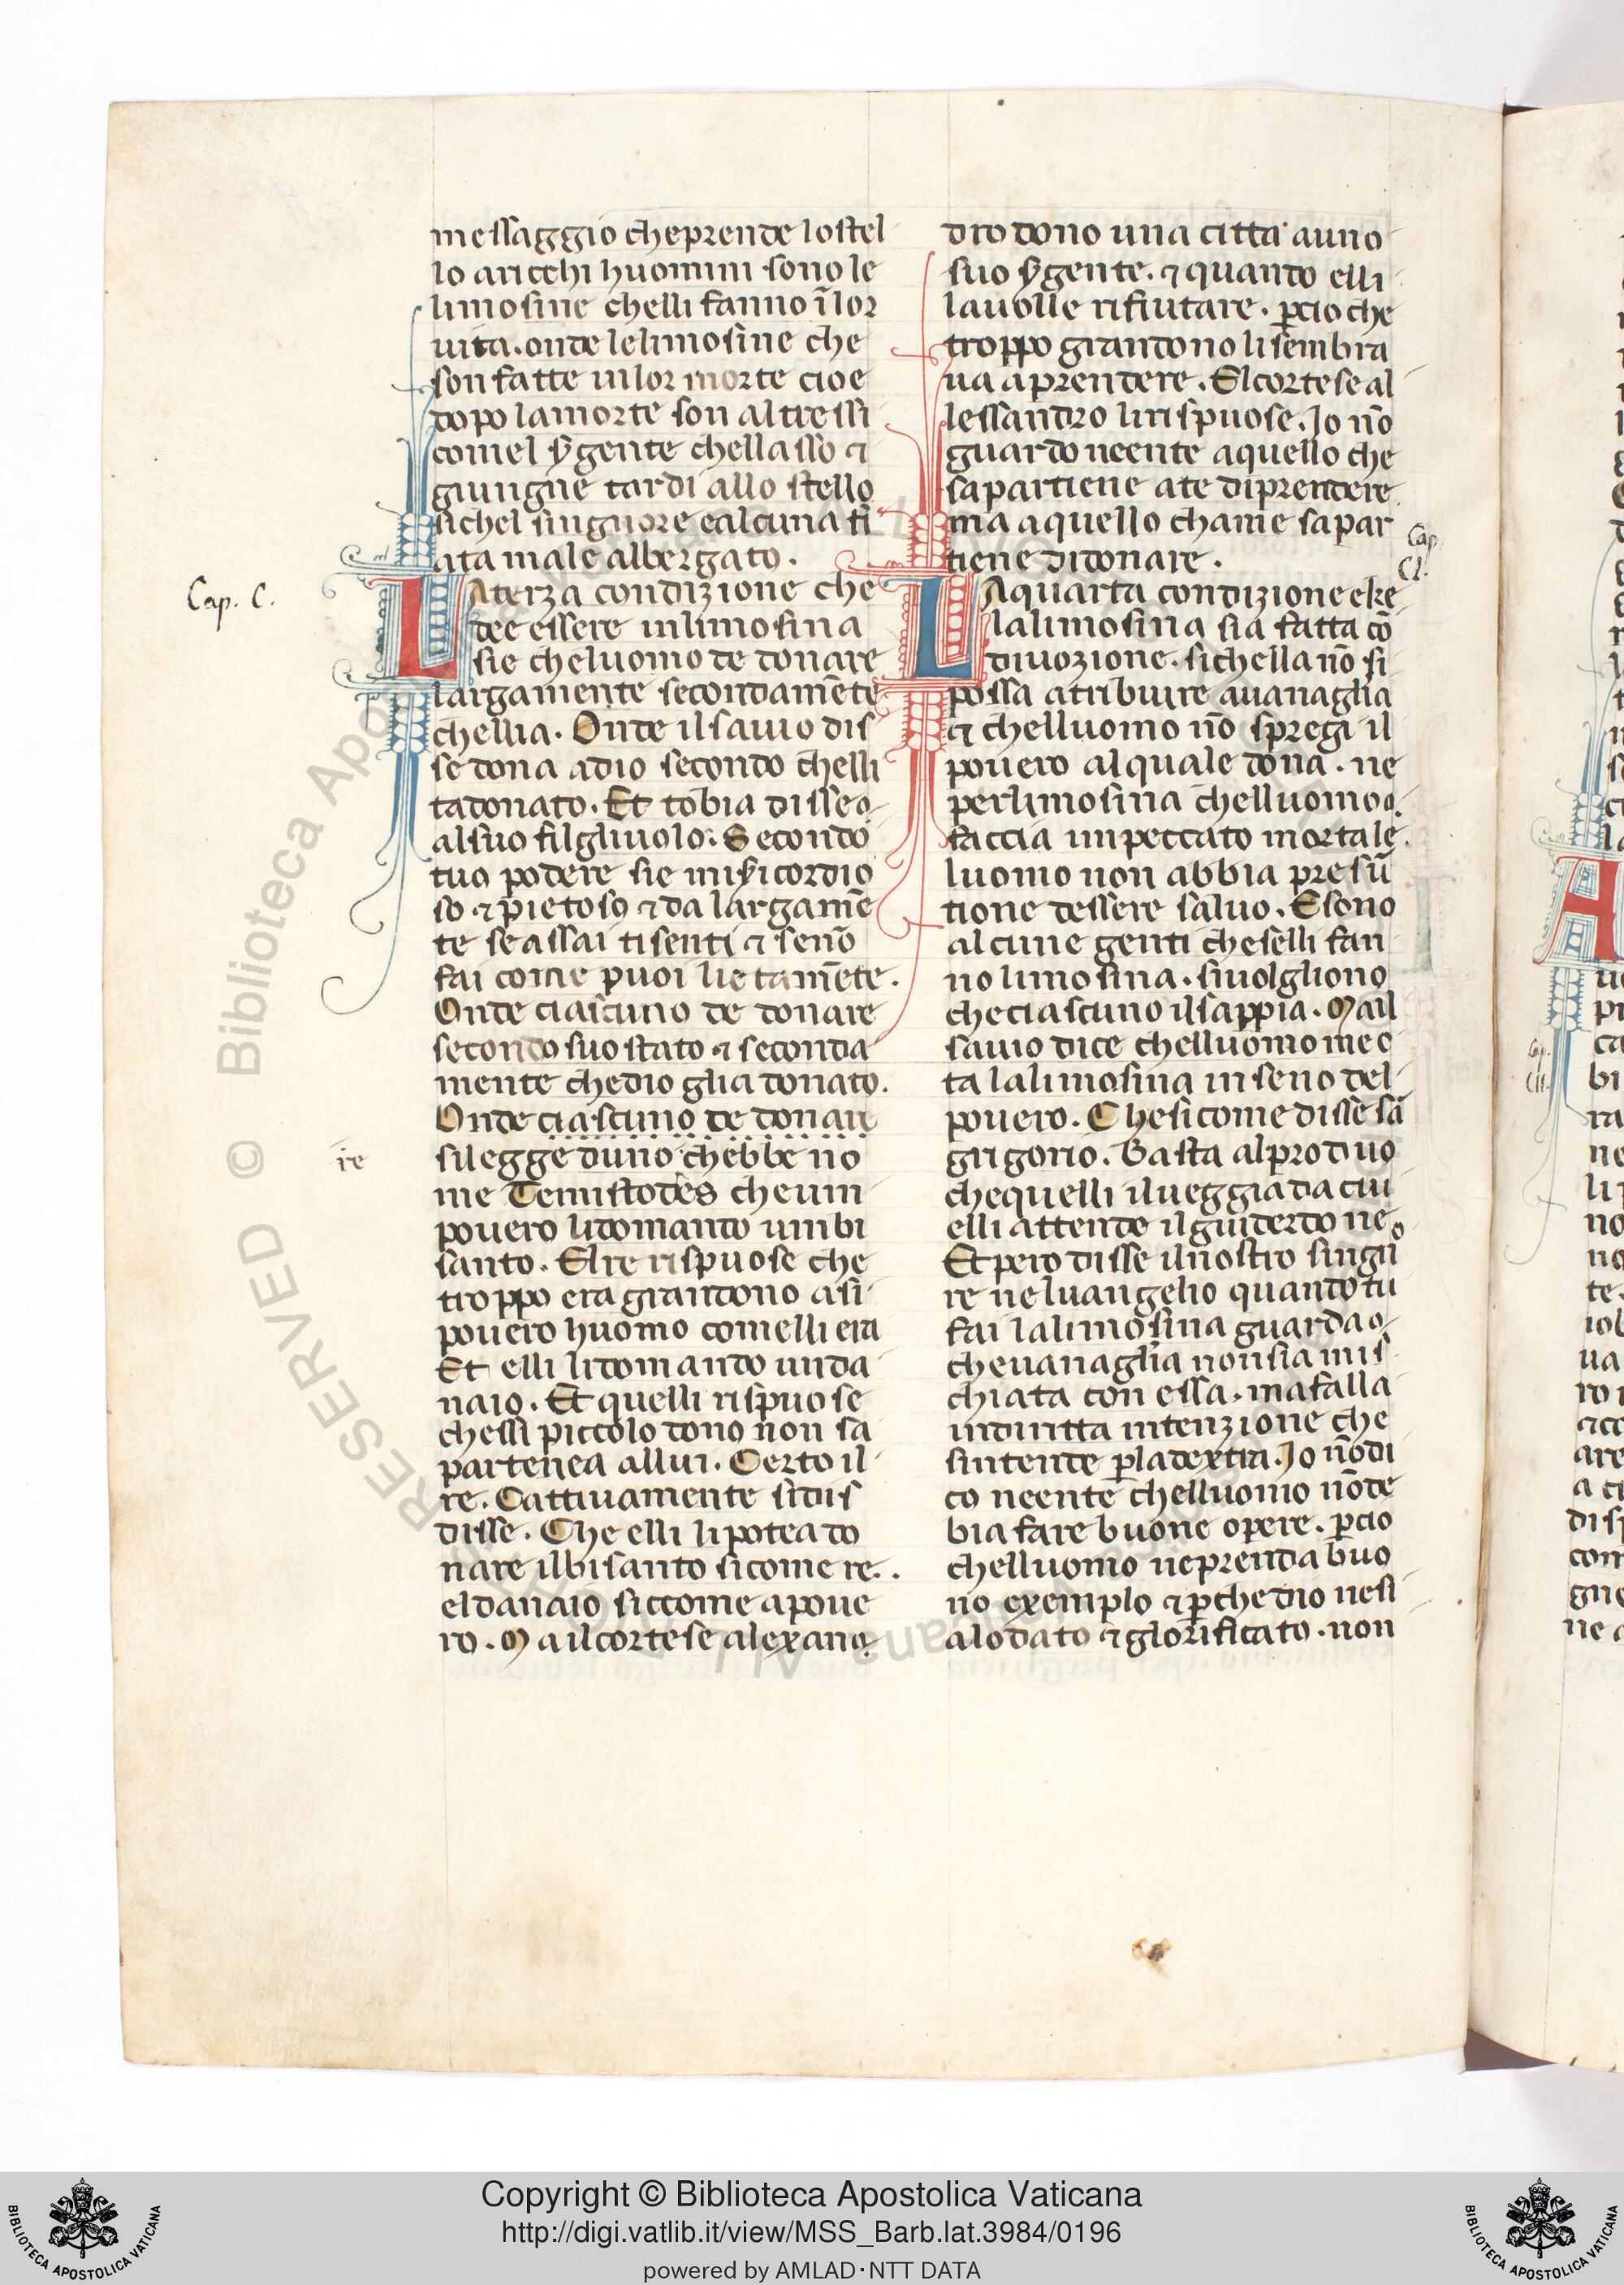 messaggio cheprende lostel
lo aricchi huomini sono le
limosine chelli fanno ĩ lor
uita. onde lelimosine che
son fatte inlor morte cioe
dopo lamorte son altressi
comel ẏgente chellasso ⁊
giungne tardi allo stello
sichel singniore ealcuna fi
ata male albergato.
Cap. C.
LAterza condizione che
dee essere inlimosina
sie cheluomo de donare
largamente secondamẽte
chellia. Onde ilsauio dis
se dona adio secondo chelli
tadonato. Et tobia disse
alsuo filgliuolo. Secondo
tuo podere sie misicordio
so ⁊ pietoso ⁊ da largamẽ
te se assai ti senti ⁊ senõ
fai come puoi lietamẽte.
Onde ciascuno de donare
secondo suo stato ⁊ seconda
mente chedio glia donato.
Onde ciascuno de donare
re
silegge duno chebbe no
me Temistodes che un
pouero lidomando un bi
santo. Elre rispuose che
troppo era grandono asi
pouero huomo comelli era
Et elli lidomando unda
naio. Et quelli rispuose
chessi piccolo dono non sa
partenea allui. Certo il
re. Cattiuamente sidis
disse. Che elli li potea do
nare ilbisanto sicome re.
eldanaio siccome apoue
ro. Ma ilcortese alexan
dro dono una citta auno
suo ẏgente. ⁊ quando elli
lauolle rifiutare. ꝑcio che
troppo grandono li sembra
ua aprendere. Elcortese al
lessandro lirispuose. Io nõ
guardo neente aquello che
sapartiene ate diprendere
ma aquello chame sapar
tiene didonare.
Cap.
CI.
LAquarta condizione eke
lalimosina sia fatta cõ
diuozione. sichella nõ si
possa atribuire auanaglia
⁊ chelluomo nõ spregi il
pouero alquale dona. ne
perlimosina chelluomo
faccia unpeccato mortale.
luomo non abbia presũ
tione dessere saluo. E sono
alcune genti cheselli fan
no limosina. siuolgliono
checiascuno ilsappia. Mail
sauio dice chelluomo mec
ta lalimosina in seno del
pouero. Che sicome disse sã
grigorio. Basta alproduo
chequelli ilueggia da cui
elli attende ilguiderdone
Et pero disse ilnostro singn
re neluangelio quando tu
fai lalimosina guarda
cheuanaglia nonsia mis
chiata con essa. mafalla
indiritta intenzione che
sintende ꝑladextra. Io nõdi
co neente chelluomo nõde
bia fare buone opere. ꝑcio
chelluomo neprenda buo
no exemplo ⁊ ꝑchedio nesi
alodato ⁊ glorificato. non
Cap.
CII.
Copyright © Biblioteca Apostolica Vaticana
http://digi.vatlib.it/view/MSS_Barb.lat.3984/0196
powered by AMLAD·NTT DATA
BIBLIOTECA APOSTOLICA VATICANA
BIBLIOTECA APOSTOLICA VATICANA